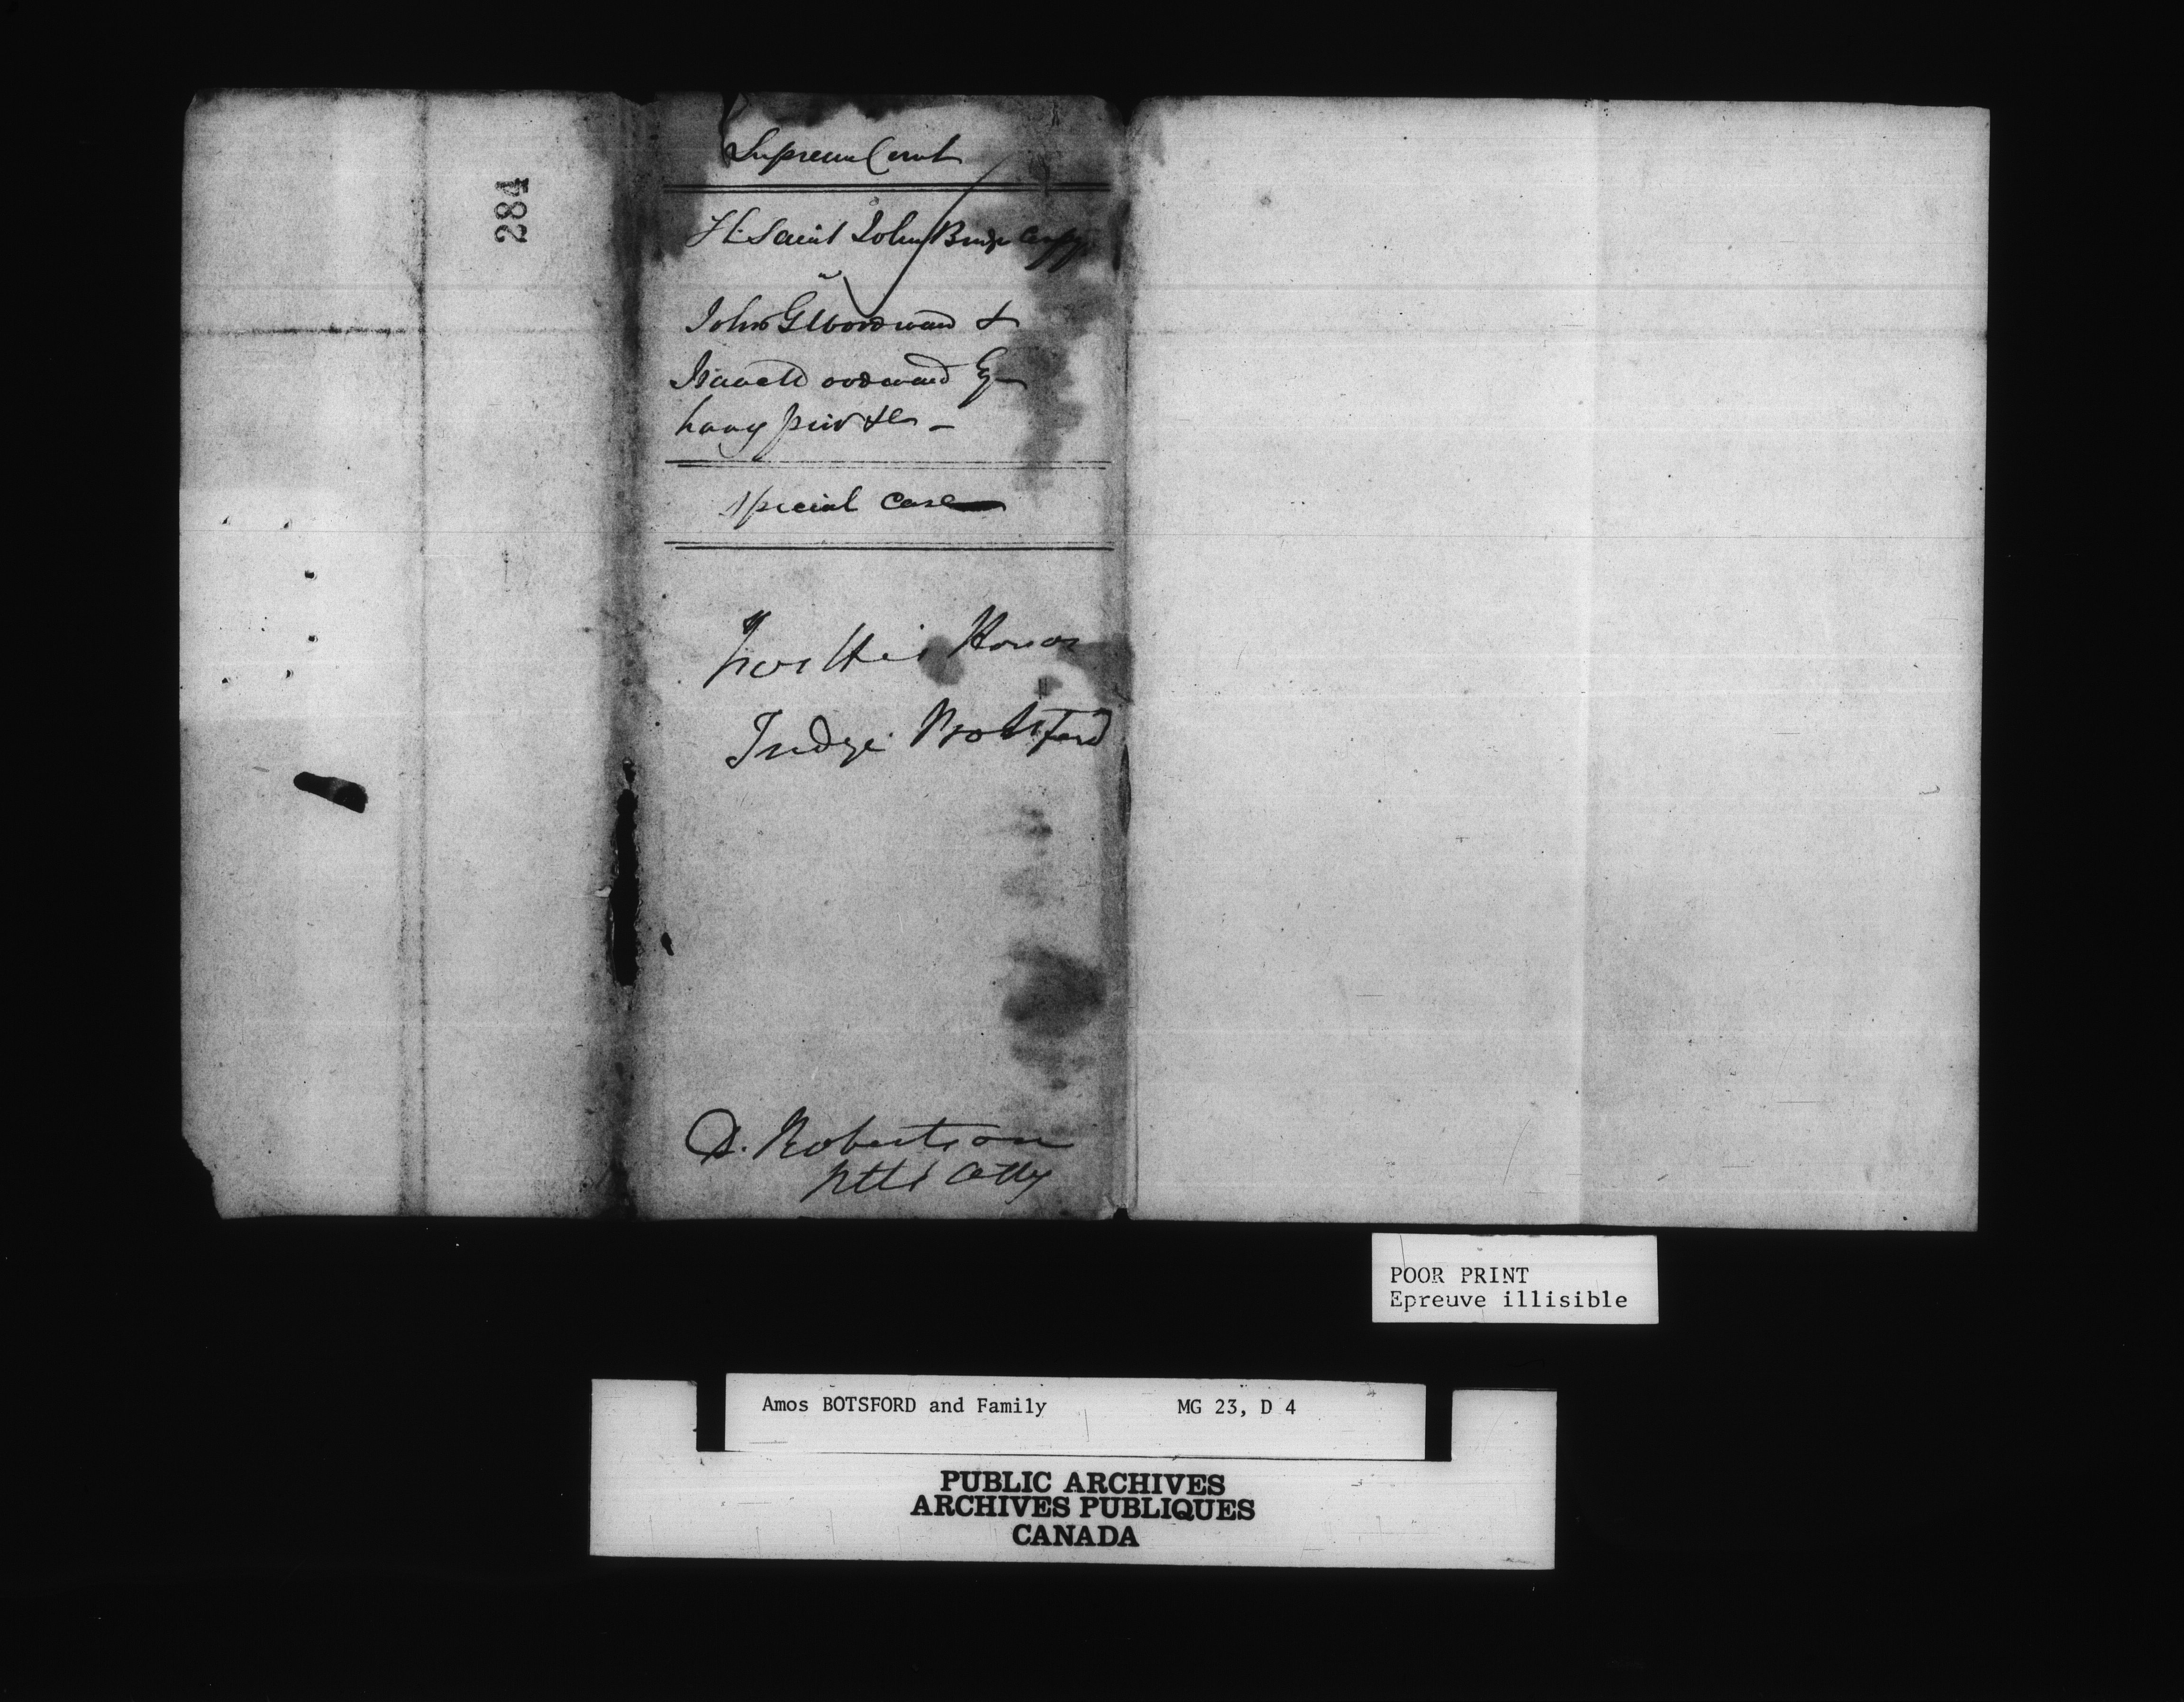 284
Supreme Court
The Saint John Bridge Compy
v
John G Woodward &
Isaac Woodward Esq
havg priv &c –
Special Case
For His Honor
Judge Botsford
D. Robertson
Pltfs Atty
POOR PRINT
Epreuve illisible
Amos BOTSFORD and Family MG 23, D 4
PUBLIC ARCHIVES
ARCHIVES PUBLIQUES
CANADA